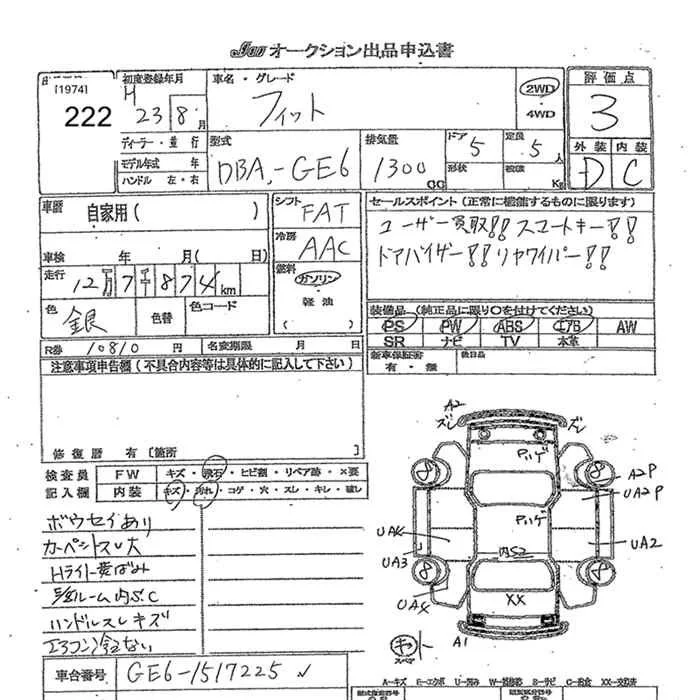 JAA オークション出品申込書
[1974]
222
初度登録年月
H 23 8 月
ディーラー・並行
モデル年式 年
ハンドル 左・右
車名・グレード
フィット
2WD
4WD
型式
DBA-GE6
排気量
1300 CC
ドア 5
形状
定員 5 人
積載 Kg
評価点
3
外装 内装
D C
車歴 自家用( )
車検 年 月( 日)
走行 12万7千874km
色 銀 色替 色コード
シフト
FAT
冷房
AAC
燃料
ガソリン
軽油
( )
セールスポイント(正常に機能するものに限ります)
ユーザー買取!! スマートキー!!
ドアバイザー!! リヤワイパー!!
装備品(純正品に限り○を付けてください)
PS PW ABS エアB AW
SR ナビ TV 本革
新車保証書
有・無
後日品
R券 10810 円 名変期限 月 日
注意事項申告欄(不具合内容等は具体的に記入して下さい)
修復歴 有〔箇所 〕
検査員 FW キズ・飛石・ヒビ割・リペア跡・×要
記入欄 内装 キズ・汚れ・コゲ・穴・スレ・キレ・破し
ボウセイあり
カーペットスレ大
Hライト黄ばみ
ルーム内S.C
ハンドルスレキズ
エアコン冷えない
A2
ズレ ズレ
ハゲ
8 8
A2P
UA2P
ハゲ
UA2
UA3
内S2
8 8
XX
A1
スペア
車台番号 GE6-1517225
A-キズ E-エクボ U-凹み S-サビ C-腐食 XX-交換済